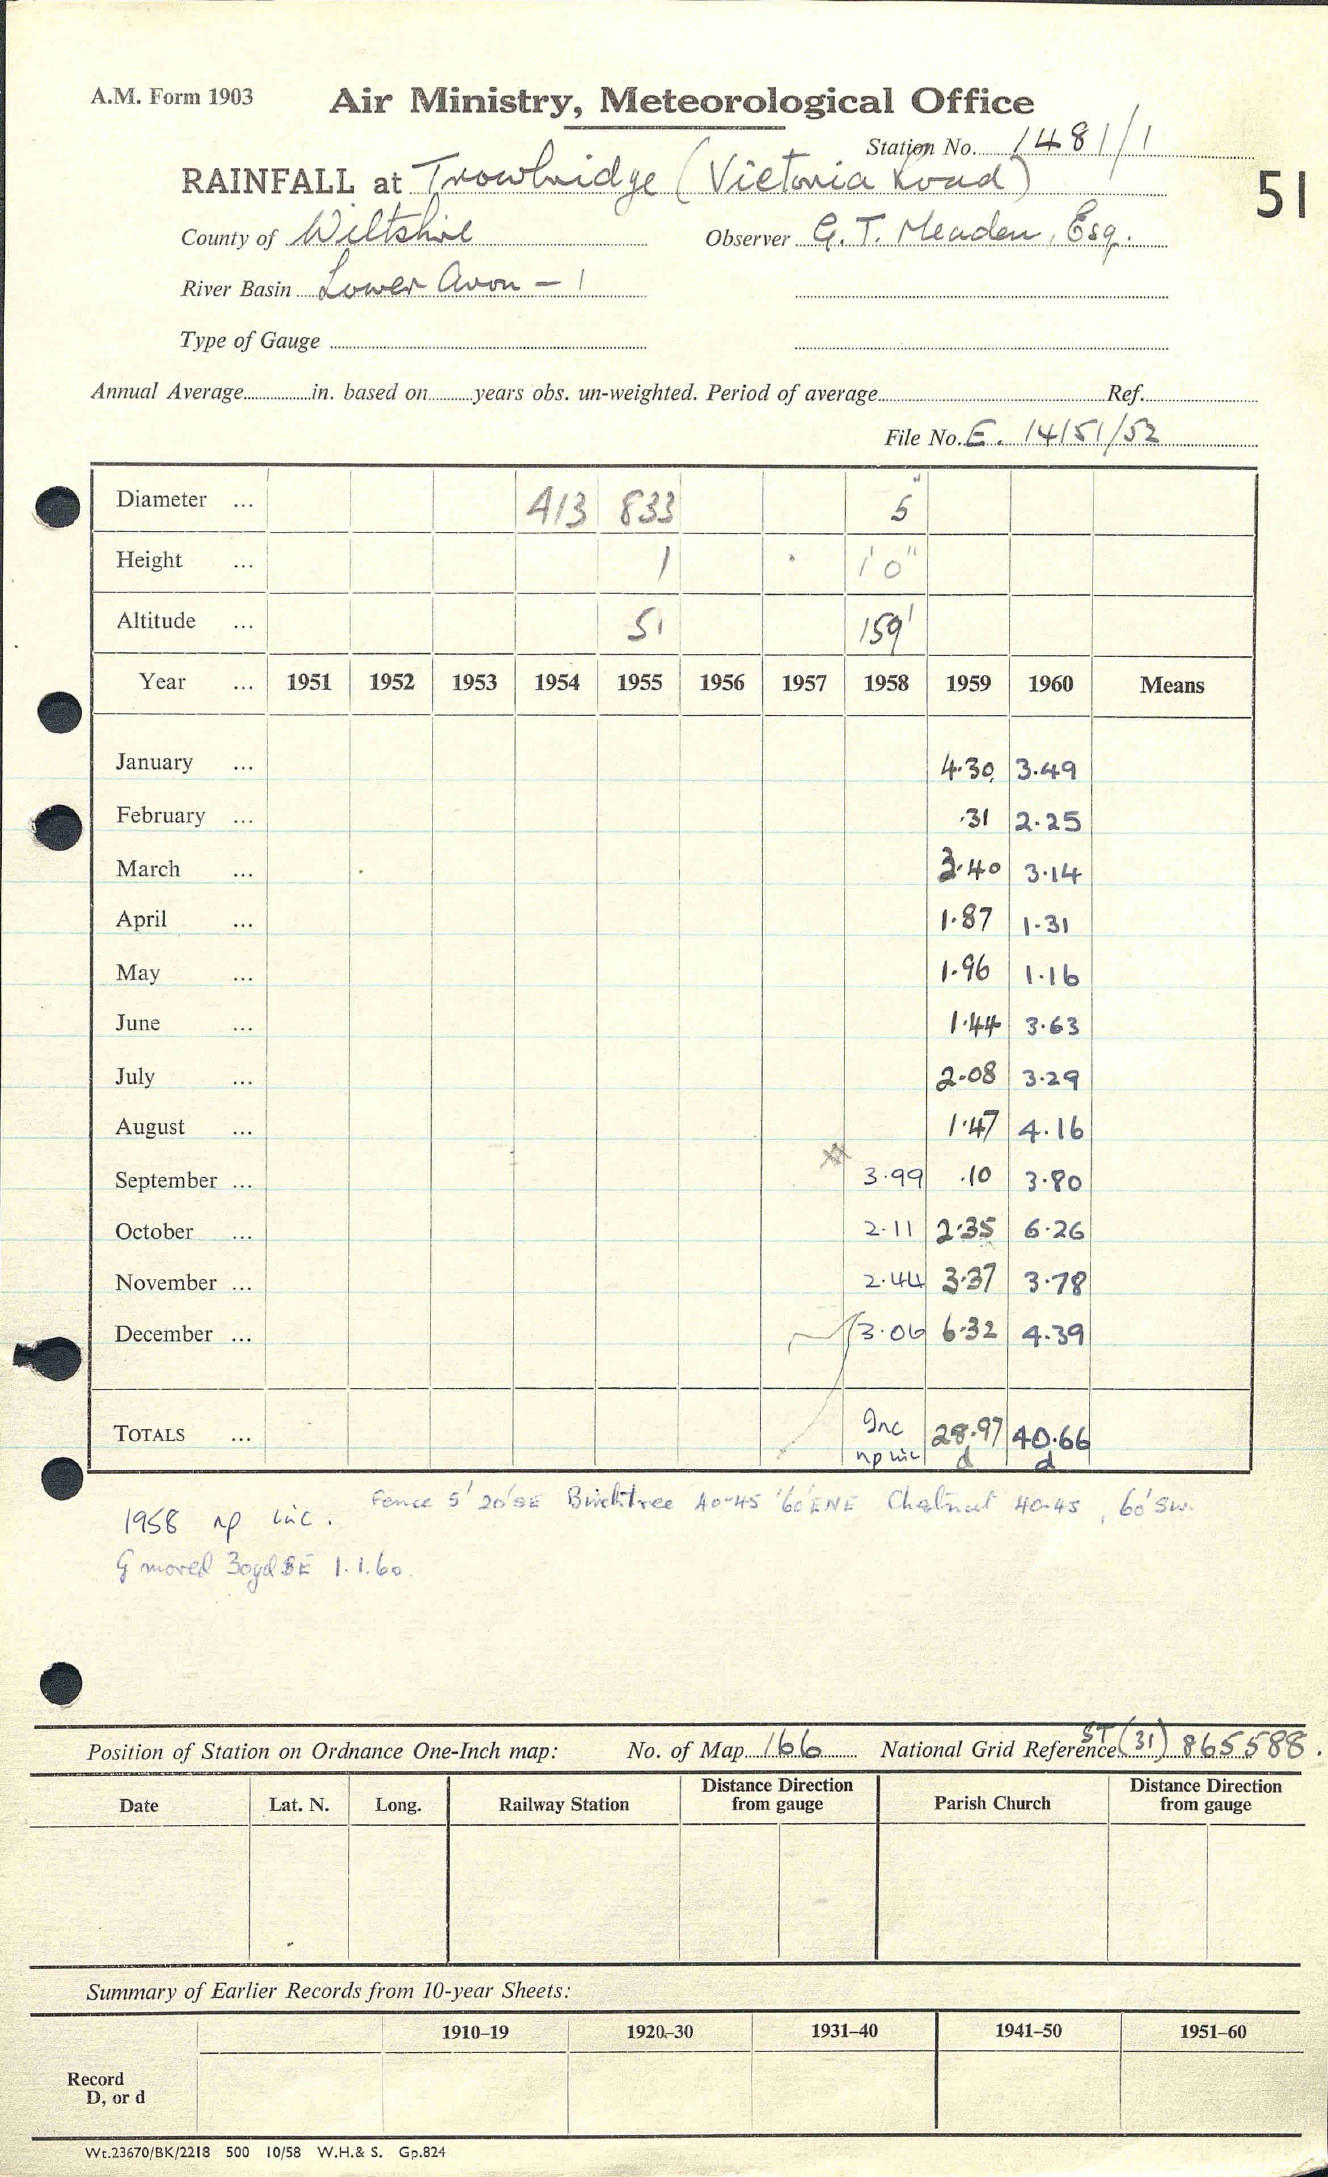 A.M. Form 1903
Air Ministry, Meteorological Office
Station No. 1481/1
RAINFALL at Trowbridge (Victoria Road)
51
County of Wiltshire Observer G. T. Meaden, Esq.
River Basin Lower Avon - 1
Type of Gauge
Annual Average in. based on years obs. un-weighted. Period of average Ref.
File No. E. 14151/52
Diameter ... 413 833 5"
Height ... 1 1'0"
Altitude ... 51 159'
Year ... 1951 1952 1953 1954 1955 1956 1957 1958 1959 1960 Means
January ... 4.30 3.49
February ... .31 2.25
March ... 3.40 3.14
April ... 1.87 1.31
May ... 1.96 1.16
June ... 1.44 3.63
July ... 2.08 3.29
August ... 1.47 4.16
September ... 3.99 .10 3.80
October ... 2.11 2.35 6.26
November ... 2.44 3.37 3.78
December ... 3.06 6.32 4.39
TOTALS ... Inc 28.97 40.66
np inc d d
Fence 5' 20'SE Birchtree 40-45 '60'ENE Chestnut 40-45, 60'SW.
1958 np inc.
G moved 30yd SE 1.1.60.
Position of Station on Ordnance One-Inch map: No. of Map 166 National Grid Reference ST (31) 865588.
Date Lat. N. Long. Railway Station Distance Direction from gauge Parish Church Distance Direction from gauge
Summary of Earlier Records from 10-year Sheets:
1910–19 1920–30 1931–40 1941–50 1951–60
Record
D, or d
Wt.23670/BK/2218 500 10/58 W.H.& S. Gp.824